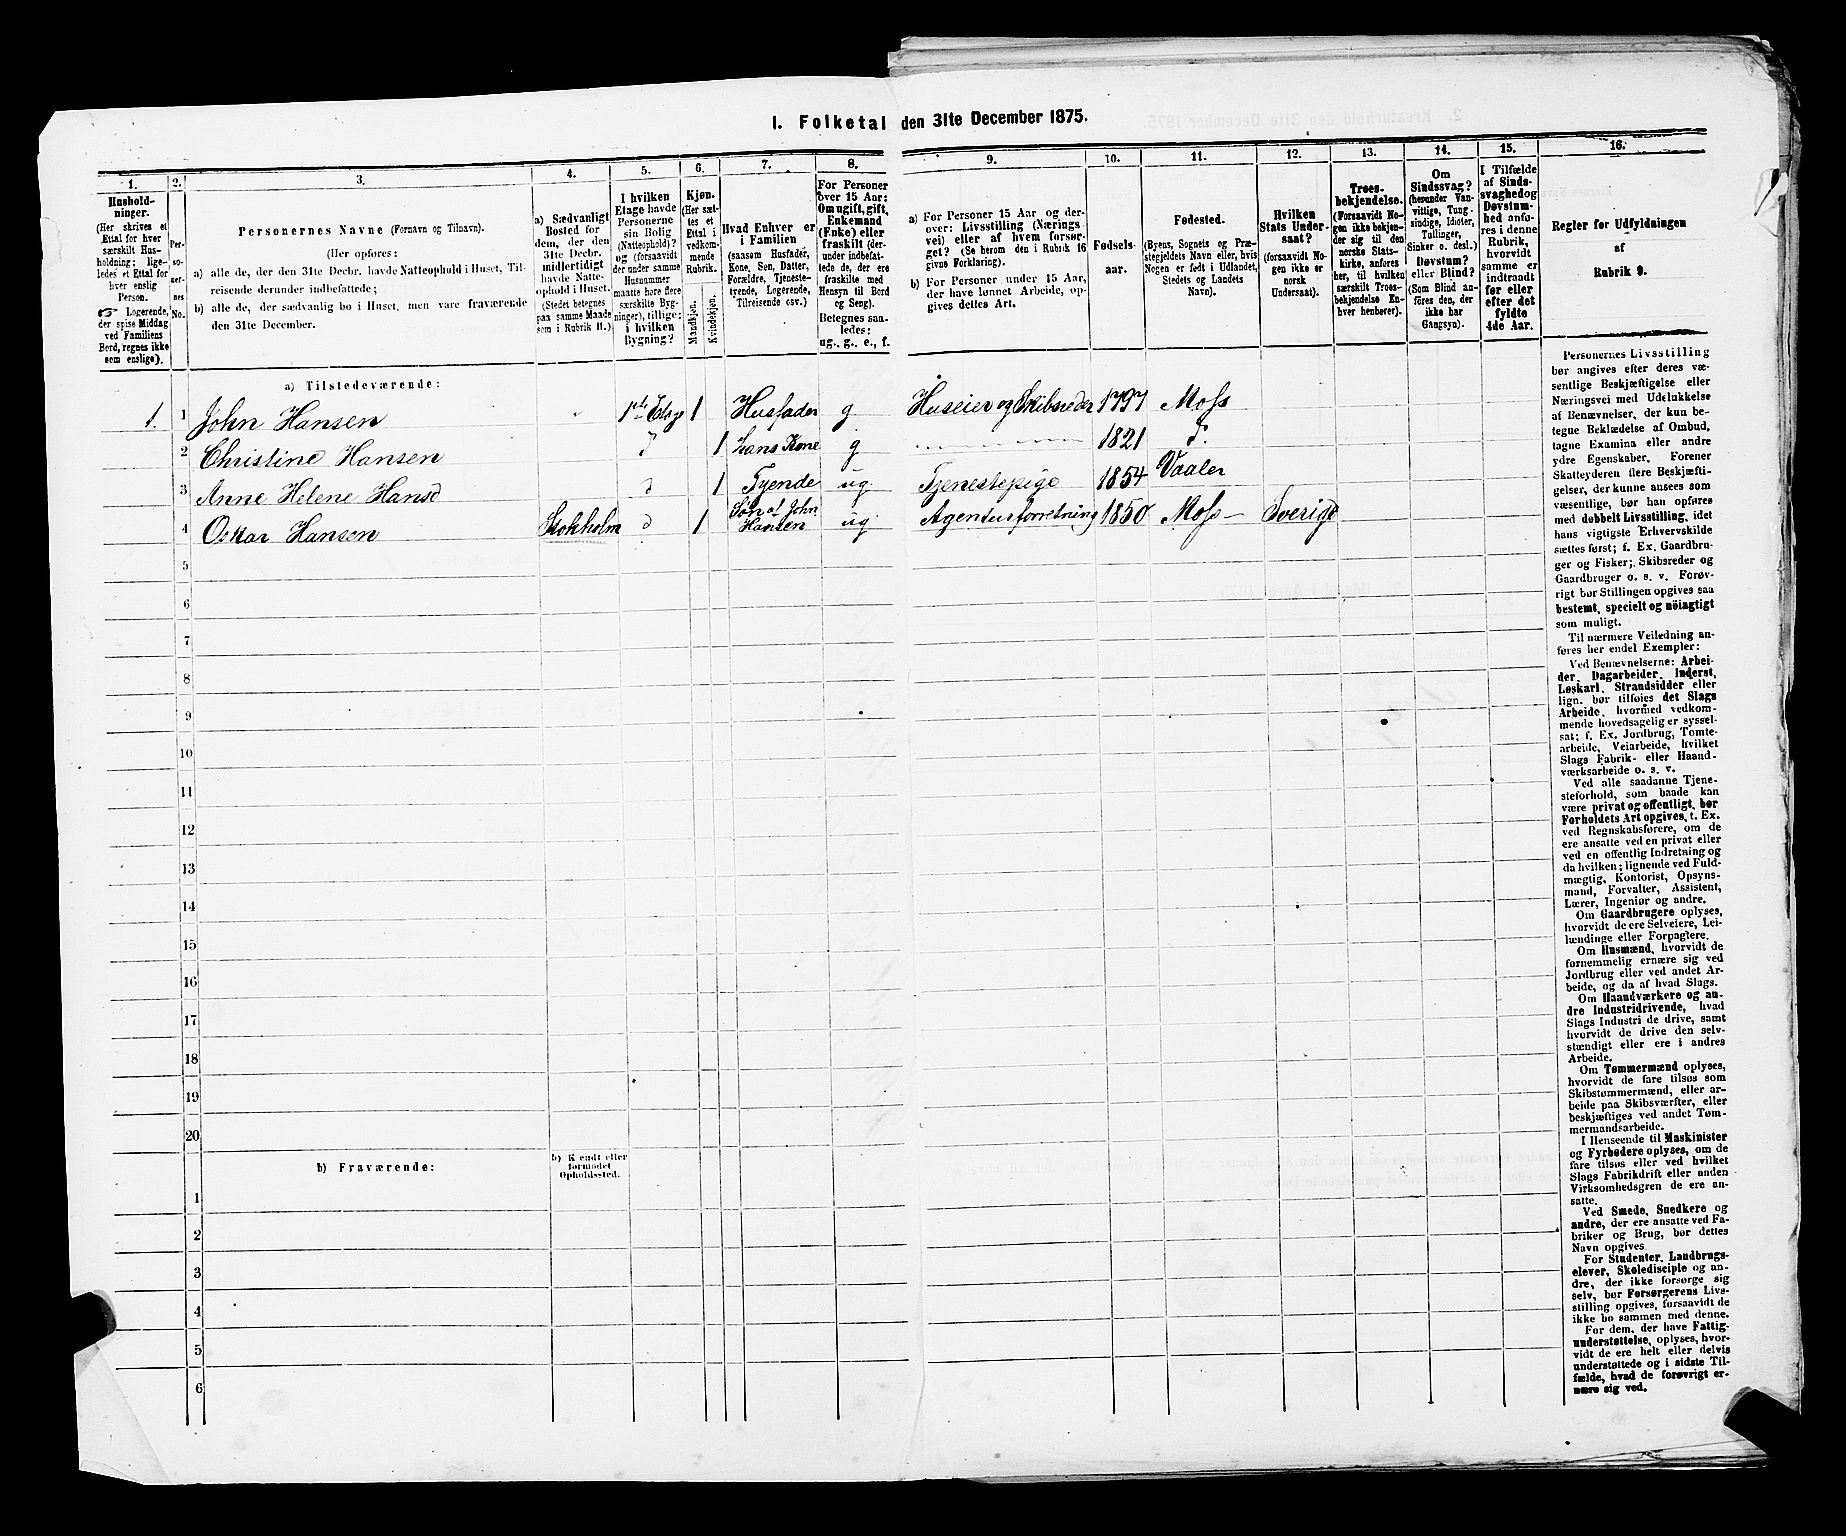 I. Folketal den 31te December 1875.
1. 2. 3. 4. 5. 6. 7. 8. 9. 10. 11. 12. 13. 14. 15. 16.
Hushold-
ninger.
(Her skrives et
Ettal for hver
særskilt Hus-
holdning; lige-
ledes et Ettal for
hver enslig
Person.
☞ Logerende,
der spise Middag
ved Familiens
Bord, regnes ikke
som enslige).
Per-
so-
ner-
nes
No.
Personernes Navne (Fornavn og Tilnavn).
(Her opføres:
a) alle de, der den 31te Decbr. havde Natteophold i Huset, Til-
reisende derunder indbefattede;
b) alle de, der sædvanlig bo i Huset, men vare fraværende
den 31te December.
a) Sædvanligt
Bosted for
dem, der den
31te Decbr.
midlertidigt
havde Natte-
ophold i Huset.
(Stedet betegnes
paa samme Maade
som i Rubrik 11.)
I hvilken
Etage havde
Personerne
sin Bolig
(Natteophold)?
og (forsaavidt
der under samme
Husnummer
maatte høre flere
særskilte Byg-
ninger), tillige:
i hvilken
Bygning?
Kjøn.
(Her sæt-
tes et
Ettal i
vedkom-
mende
Rubrik.
Mandkjøn.
Kvindekjøn.
Hvad Enhver er
i Familien
(saasom Husfader,
Kone, Søn, Datter,
Forældre, Tjeneste-
tyende, Logerende,
Tilreisende osv.)
For Personer
over 15 Aar:
Om ugift, gift,
Enkemand
(Enke) eller
fraskilt (der-
under indbefat-
tede de, der ere
fraskilte med
Hensyn til Bord
og Seng).
Betegnes saa-
ledes:
ug., g., e., f.
a) For Personer 15 Aar og der-
over: Livsstilling (Nærings-
vei) eller af hvem forsør-
get? (Se herom den i Rubrik 16
givne Forklaring).
b) For Personer under 15 Aar,
der have lønnet Arbeide, op-
gives dettes Art.
Fødsels-
aar.
Fødested.
(Byens, Sognets og Præ-
stegjeldets Navn eller, hvis
Nogen er født i Udlandet,
Stedets og Landets
Navn).
Hvilken
Stats Under-
saat?
(forsaavidt No-
gen ikke er
norsk
Undersaat).
Troes-
bekjendelse.
(Forsaavidt No-
gen ikke bekjen-
der sig til den
norske Stats-
kirke, anføres
her, til hvilken
særskilt Troes-
bekjendelse En-
hver henhører).
Om
Sindssvag?
(herunder Van-
vittige, Tung-
sindige, Idioter,
Tullinger,
Sinker o. desl.)
Døvstum?
eller Blind?
(Som Blind an-
føres den, der
ikke har
Gangsyn).
I Tilfælde
af Sinds-
svaghed og
Døvstum-
hed anfø-
res i denne
Rubrik,
hvorvidt
samme er
indtraadt
før eller
efter det
fyldte
4de Aar.
Regler for Udfyldningen
af
Rubrik 9.
a) Tilstedeværende:
1. 1 John Hansen 1ste Etage 1 Husfader g Huseier og Skibsreder 1797 Moss
2 Christine Hansen d 1 hans Kone g 1821 d.
3 Anne Helene Hansd d 1 Tyende ug. Tjenestepige 1854 Vaaler
4 Oskar Hansen Stokholm d 1 Søn af John Hansen ug. Agenturforretning 1850 Moss Sverige
5
6
7
8
9
10
11
12
13
14
15
16
17
18
19
20
b) Fraværende:
b) Kjendt eller
formodet
Opholdssted.
1
2
3
4
5
6
Personernes Livsstilling
bør angives efter deres væ-
sentlige Beskjæftigelse eller
Næringsvei med Udelukkelse
af Benævnelser, der kun be-
tegne Beklædelse af Ombud,
tagne Examina eller andre
ydre Egenskaber. Forener
Skatteyderen flere Beskjæfti-
gelser, der kunne ansees som
væsentlige, bør han opføres
med dobbelt Livsstilling, idet
hans vigtigste Erhvervskilde
sættes først; f. Ex. Gaardbru-
ger og Fisker; Skibsreder og
Gaardbruger o. s. v. Forøv-
rigt bør Stillingen opgives saa
bestemt, specielt og nöiagtigt
som muligt.
Til nærmere Veiledning an-
føres her endel Exempler:
Ved Benævnelserne: Arbei-
der, Dagarbeider, Inderst,
Løskarl, Strandsidder eller
lign. bør tilføies det Slags
Arbeide, hvormed vedkom-
mende hovedsagelig er syssel-
sat; f. Ex. Jordbrug, Tomte-
arbeide, Veiarbeide, hvilket
Slags Fabrik- eller Haand-
værksarbeide o. s. v.
Ved alle saadanne Tjene-
steforhold, som baade kan
være privat og offentligt, bør
Forholdets Art opgives, f. Ex.
ved Regnskabsførere, om de
ere ansatte ved en privat eller
ved en offentlig Indretning og
da hvilken; lignende ved Fuld-
mægtig, Kontorist, Opsyns-
mand, Forvalter, Assistent,
Lærer, Ingeniør og andre.
Om Gaardbrugere oplyses,
hvorvidt de ere Selveiere, Lei-
lændinge eller Forpagtere.
Om Husmænd, hvorvidt de
fornemmelig ernære sig ved
Jordbrug eller ved andet Ar-
beide, og da af hvad Slags.
Om Haandværkere og an-
dre Industridrivende, hvad
Slags Industri de drive, samt
hvorvidt de drive den selv-
stændigt eller ere i andres
Arbeide.
Om Tømmermænd oplyses,
hvorvidt de fare tilsøs som
Skibstømmermænd, eller ar-
beide paa Skibsværfter, eller
beskjæftiges ved andet Tøm-
mermandsarbeide.
I Henseende til Maskinister
og Fyrbødere oplyses, om de
fare tilsøs eller ved hvilket
Slags Fabrikdrift eller anden
Virksomhedsgren de ere an-
satte.
Ved Smede, Snedkere og
andre, der ere ansatte ved Fa-
briker og Brug, bør dettes
Navn opgives.
For Studenter, Landbrugs-
elever, Skoledisciple og an-
dre, der ikke forsørge sig
selv, bør Forsørgerens Livs-
stilling opgives, forsaavidt de
ikke bo sammen med denne.
For dem, der have Fattig-
understøttelse, oplyses, hvor-
vidt de ere helt eller delvis
understøttede og i sidste Til-
fælde, hvad de forøvrigt er-
nære sig ved.